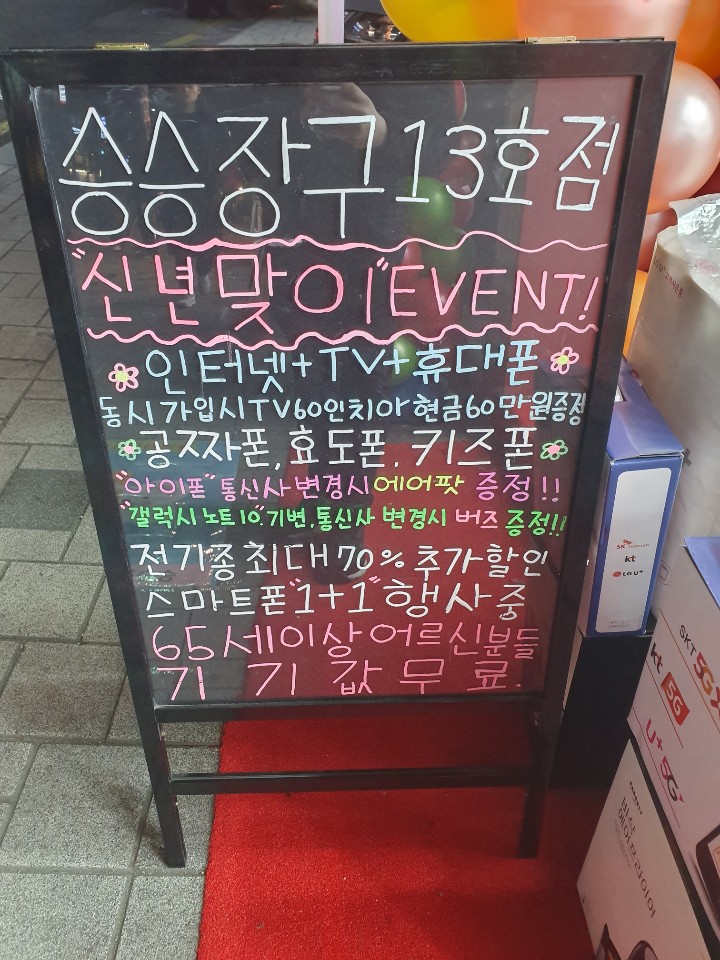 승승장구 13호점
"신년맞이" EVENT!
인터넷+TV+휴대폰
동시가입시 TV60인치 or 현금60만원증정
공짜폰, 효도폰, 키즈폰
"아이폰" 통신사 변경시 에어팟 증정!!
"갤럭시 노트10" 기변, 통신사 변경시 버즈 증정!!
전기종 최대 70% 추가할인
스마트폰 "1+1" 행사중
65세이상 어르신분들
기기값 무료.
SK telecom
kt
LG U+
SKT 5GX
kt 5G
U+5G
에어프라이어